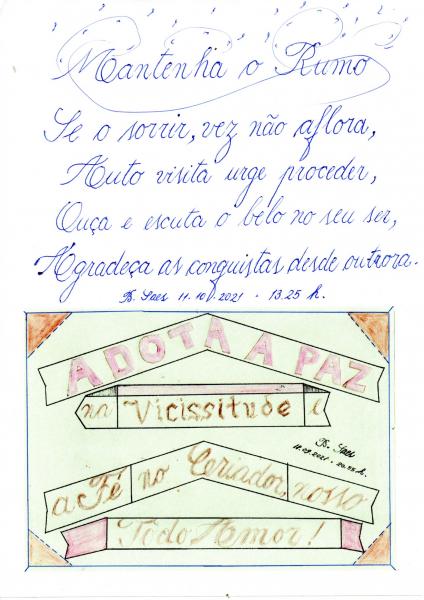 Mantenha o Rumo
Se o sorrir, vez não aflora,
Auto visita urge proceder,
Ouça e escuta o belo no seu ser,
Agradeça as conquistas desde outrora.
B. Saes 11.10.2021 - 13.25 h.
ADOTA A PAZ
na Vicissitude e
B. Saes
11.09.2021 - 20.25 h.
a Fé no Criador, nosso
Todo Amor!